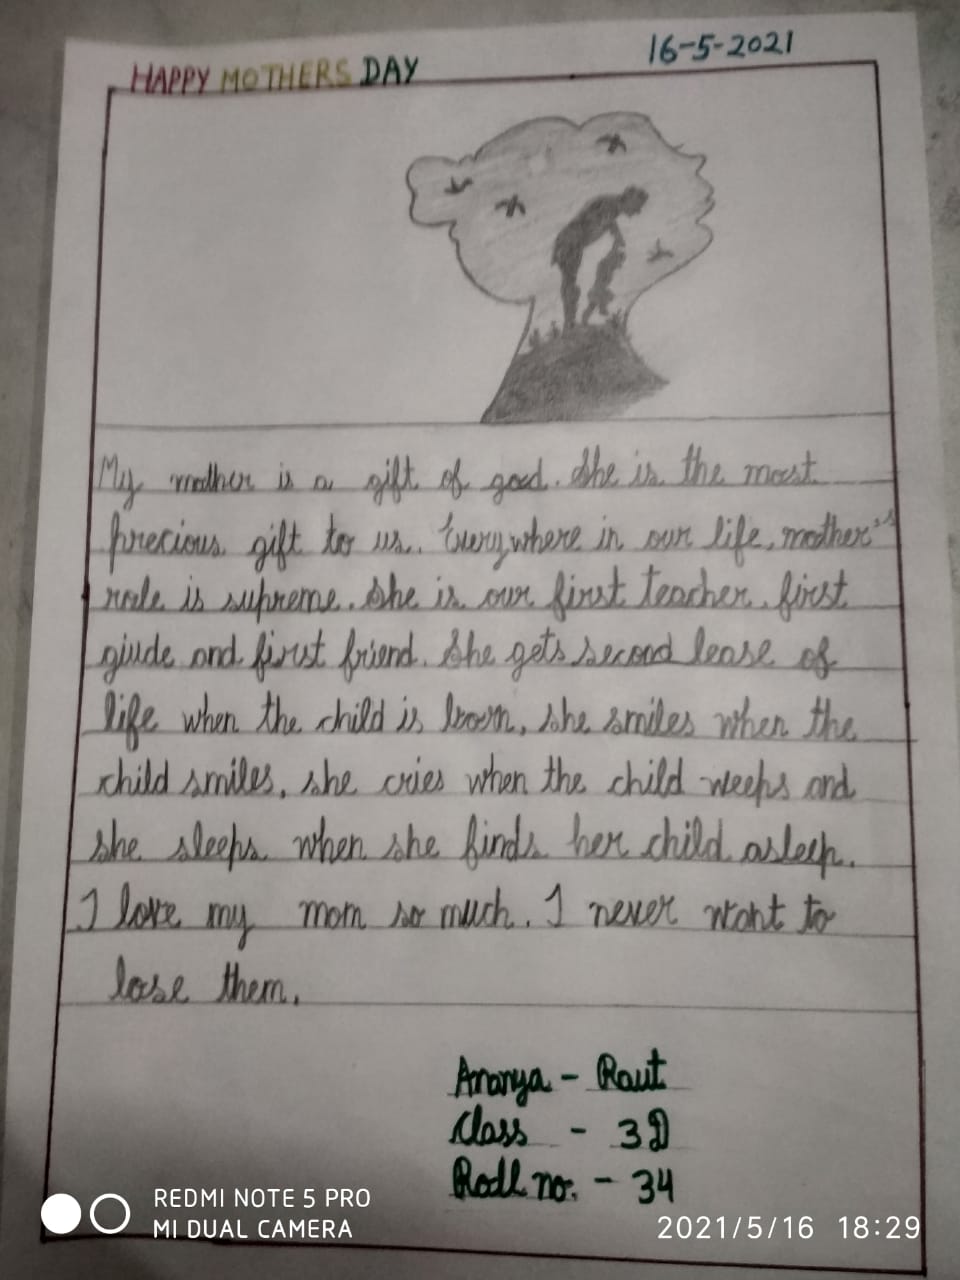 HAPPY MOTHERS DAY
16-5-2021
My mother is a gift of god. She is the most
precious gift to us. Everywhere in our life, mother's
role is supreme. She is our first teacher, first
giude and first friend. She gets second lease of
life when the child is born, she smiles when the
child smiles, she cries when the child weeps and
she sleeps when she finds her child asleep.
I love my mom so much. I never want to
lose them.
Ananya - Raut
Class - 3D
Roll no. - 34
REDMI NOTE 5 PRO
MI DUAL CAMERA
2021/5/16 18:29